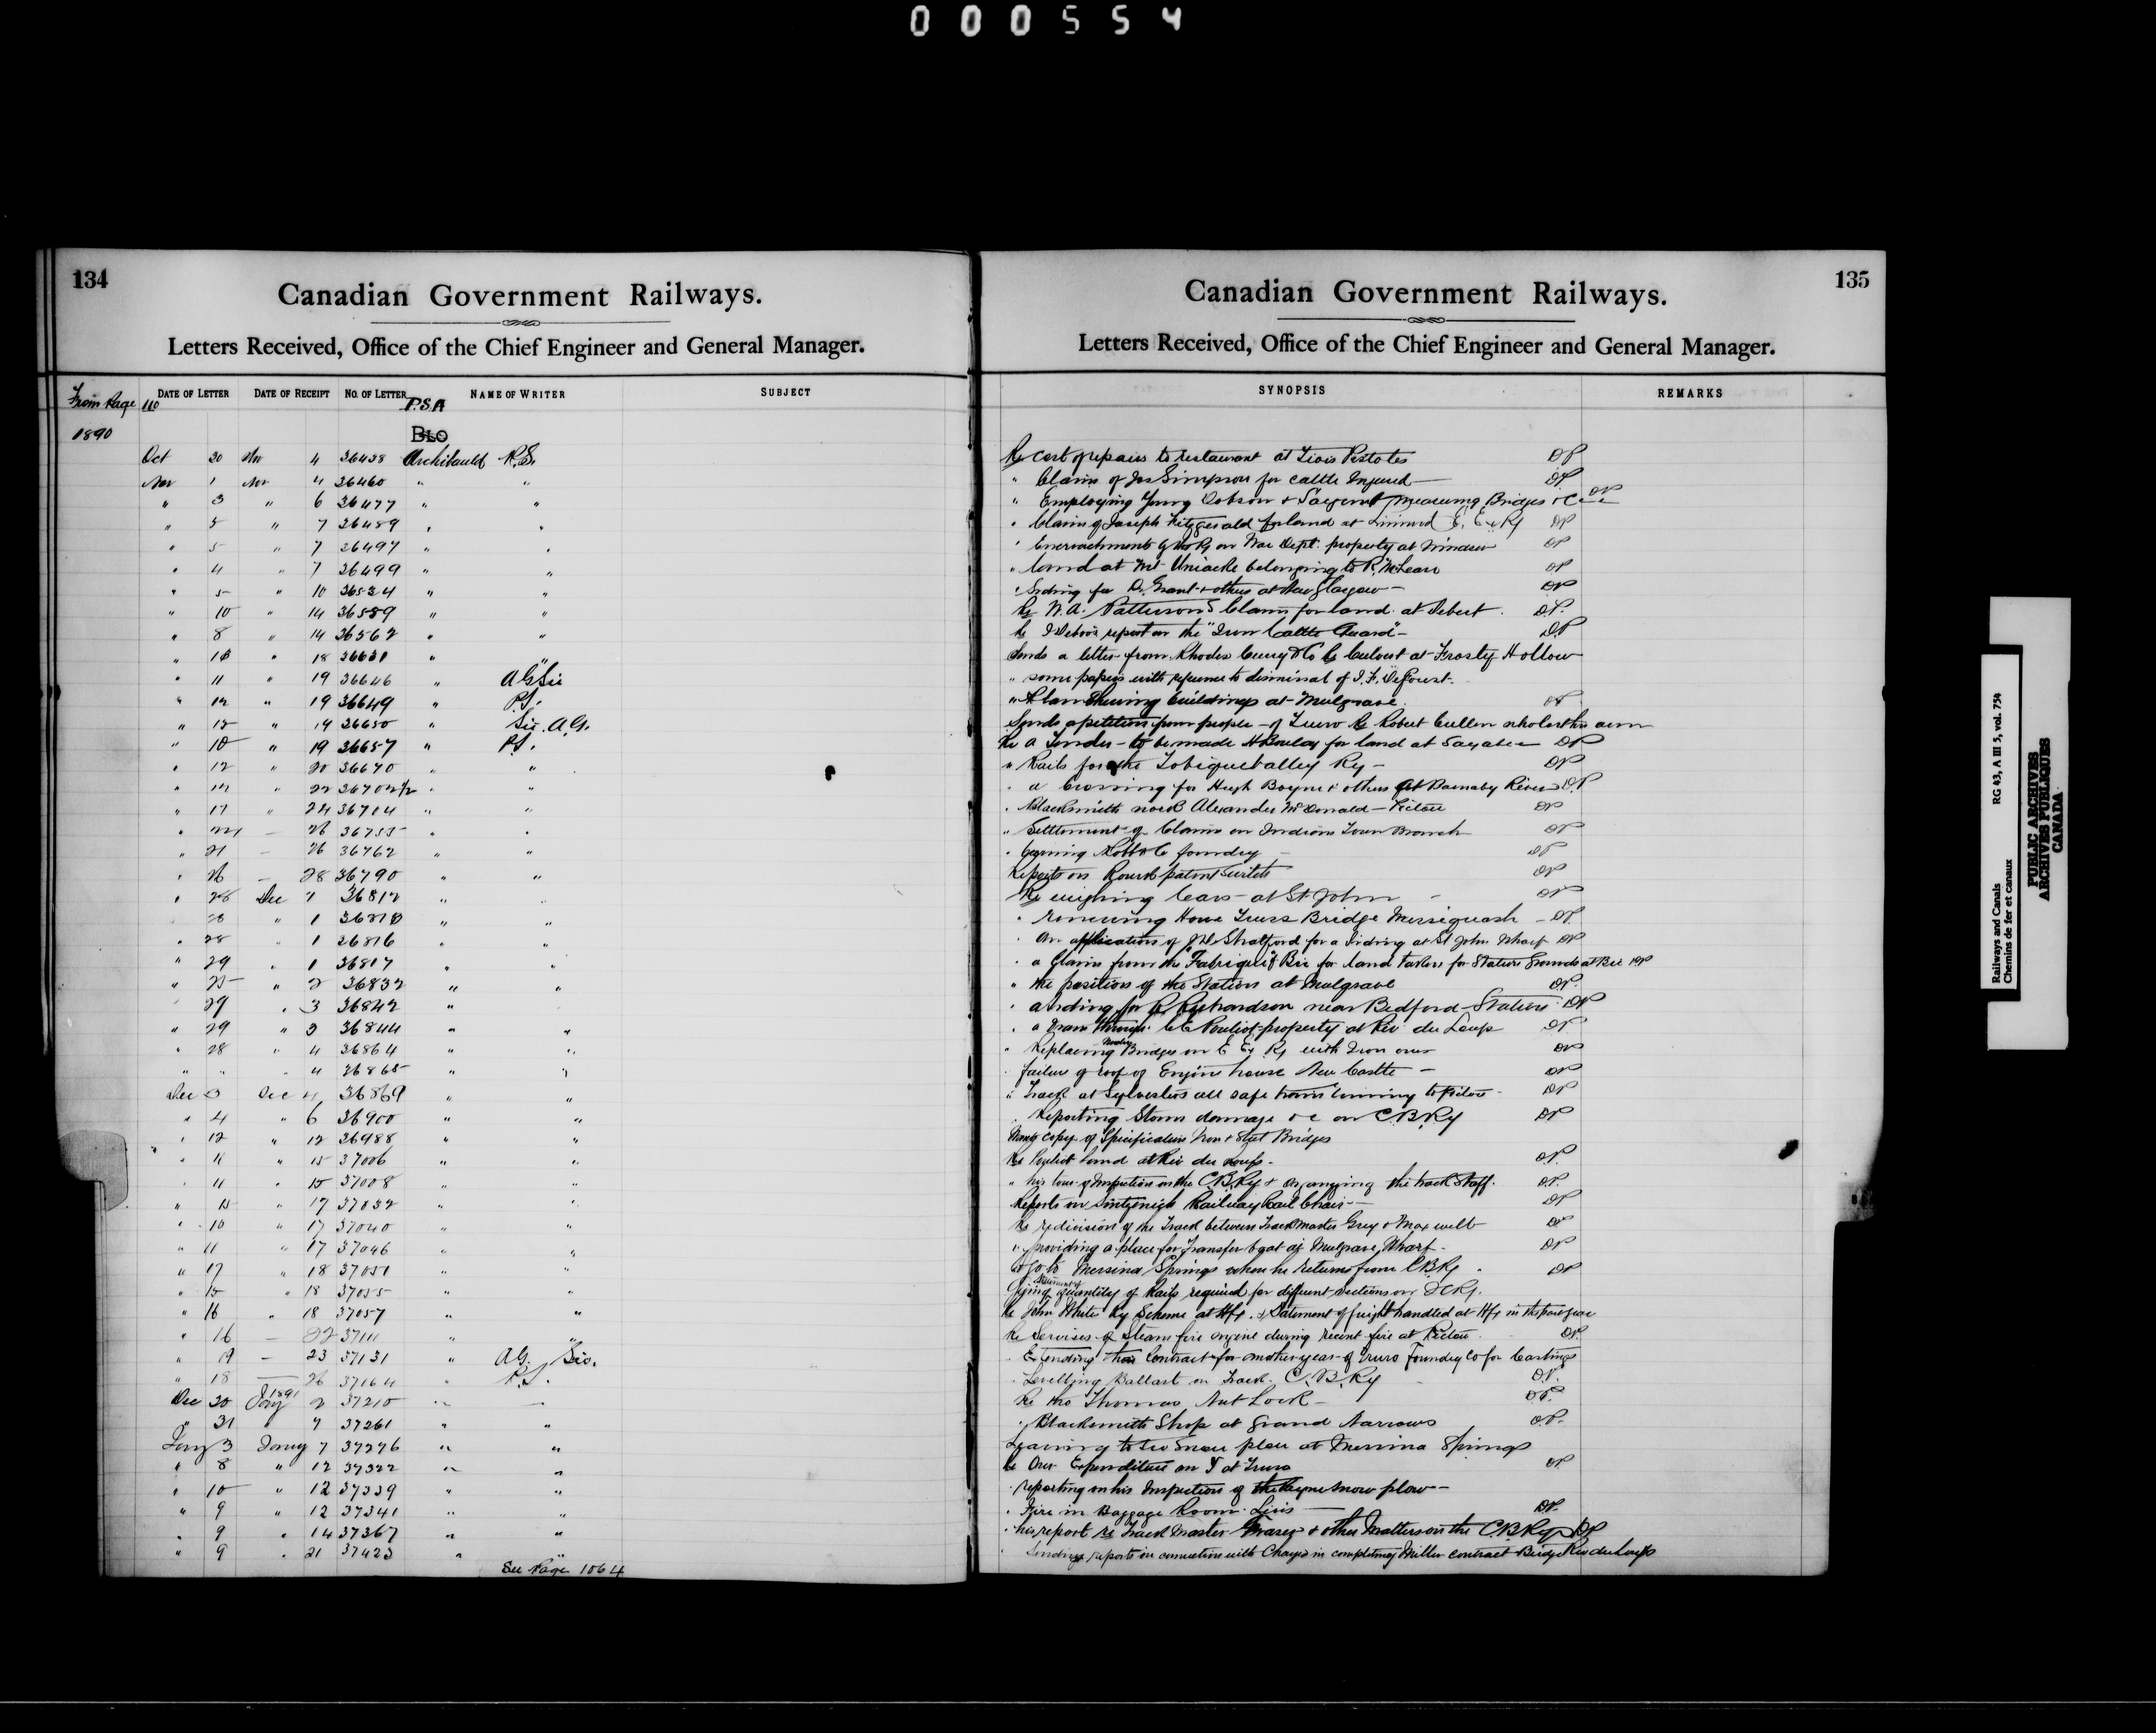 000554
134
Canadian Government Railways.
Letters Received, Office of the Chief Engineer and General Manager.
From Page 110
DATE OF LETTER DATE OF RECEIPT NO. OF LETTER NAME OF WRITER SUBJECT
P.S.A
1890 BLO
Oct 30 Nov 4 36438 Archibauld P.S.
Nov 1 Nov 4 36460 " "
" 3 " 6 36477 " "
" 5 " 7 36489 " "
" 5 " 7 36497 " "
" 4 " 7 36499 " "
" 5 " 10 36524 " "
" 10 " 14 36559 " "
" 8 " 14 36562 " "
" 18 36631 " "
" 11 " 19 36646 " A G Sir
" 12 " 19 36649 " P.S.
" 15 " 19 36650 " Sir A.G.
" 10 " 19 36657 " P.S.
" 12 " 20 36670 " "
" " 22 36702½ " "
" 17 " 24 36704 " "
" — 26 36755 " "
" 21 — 26 36762 " "
" 26 — 28 36790 " "
" 28 Dec 1 36812 " "
" 28 " 1 " "
" 28 " 1 36816 " "
" 29 " 1 36817 " "
" 25 " 2 36832 " "
29 " 3 36842 "
" 29 " 3 36844 " "
" 28 " 4 36864 " "
" " " 4 36865 " "
Dec 3 Dec 4 36869 " "
" 4 " 6 36900 " "
" 12 " 12 36988 " "
" 11 " 15 37006 " "
" 11 " 15 37008 " "
" 15 " 17 37032 " "
" 10 " 17 37040 " "
" 11 " 17 37046 " "
" 17 " 18 37051 " "
" 15 " 18 37055 " "
" 16 " 18 37057 " "
" 16 — 22 37111 "
" 19 — 23 37131 " A G. Sir.
" 18 — 26 37164 " P.S.
1891
Dec 30 Jany 2 37210 " —
" 31 " 7 37261 " "
Jany 3 Jany 7 37276 " "
" 8 " 12 37322 " "
" 10 12 37339 " "
" 9 " 12 37341 " "
" 9 " 14 37367 " "
" 9 " 21 37423 " "
See Page 1064
135
Canadian Government Railways.
Letters Received, Office of the Chief Engineer and General Manager.
SYNOPSIS REMARKS
Re cost of repairs to restaurant at Trois Pistoles DP
" Claim of Jas Simpson for cattle Injured — DP
" Employing Young Dobson & Sargent measuring Bridges &c DP
" Claim of Joseph Fitzgerald for land at E. Ex Ry DP
" Encroachments of Ry on War Dept. property at Windsor DP
" land at Mt Uniacke belonging to R. McLean DP
" Siding for D. Grant & others at New Glasgow — DP
Re W.A. Patterson's Claim for land at Debert. DP.
Re report on the "Iron Cattle Guard" — DP
Sends a letter from Rhodes Curry & Co Re Culvert at Frosty Hollow
" some papers with reference to dismissal of
" Plan Shewing buildings at Mulgrave. DP
Sends a petition from people of Truro Re Robert Cullen who lost his arm
Re a Tender to be made for land at DP
" Rails for the Tobique Valley Ry — DP
" a crossing for Hugh Boyne & others at Barnaby River DP
" Blacksmith work Alexander McDonald — Pictou DP
" Settlement of Claims on Indian Town Branch DP
" foundry — DP
Reports on patent DP
Re weighing Cars at St John — DP
" renewing Howe Truss Bridge Missiquash — DP.
" An application of Stratford for a Siding at St John Wharf DP
" a Claim from the "Fabrique of Bic for land taken for Station Grounds at Bic DP
" the position of the Station at Mulgrave DP.
" a siding for Richardson near Bedford Station DP
" a drain through Pouliot property at Riv du Loup DP
" Replacing Wooden Bridges on E Ex Ry with Iron ones DP
" failure of roof of Engine house New Castle — DP
" Track at Sylvesters all safe trains running to Pictou DP
" Reporting Storm damage &c on C.B.Ry DP
copy of Specification Iron & Steel Bridges
Re Pouliot land at Riv du Loup. DP.
" his tour of Inspection on the C.B.Ry & arranging the track Staff. DP.
Reports on Railway Rail Chair — DP
Re redivision of the Track between Trackmaster Grey & Maxwell DP
" providing a place for Transfer boat at Mulgrave Wharf. DP
to go to Messina Springs when he returns from CBRy. DP
Giving Statement of quantity of Rails required for different sections on ICRy.
Re John White Ry Scheme at Hfx. & Statement of freight handled at Hfx in the past year
Re Services of Steam fire engine during recent fire at Pictou DP.
" Extending Contract for another year of Truro Foundry Co for Castings
" Levelling Ballast on Track C.B.Ry DP.
Re the Thomas Nut Lock — DP.
" Blacksmith Shop at Grand Narrows DP.
Leaving to see Snow plow at Messina Springs
Re Over Expenditure on Y at Truro DP
" reporting on his Inspection of the Snow plow —
" Fire in Baggage Room Levis DP.
" his report re Track Master & other Matters on the CBRy DP
" Sending reports in connection with in completing Miller contract Bridge Riv du Loup
Railways and Canals RG 43, A III 5, vol. 754
Chemins de fer et canaux
PUBLIC ARCHIVES
ARCHIVES PUBLIQUES
CANADA